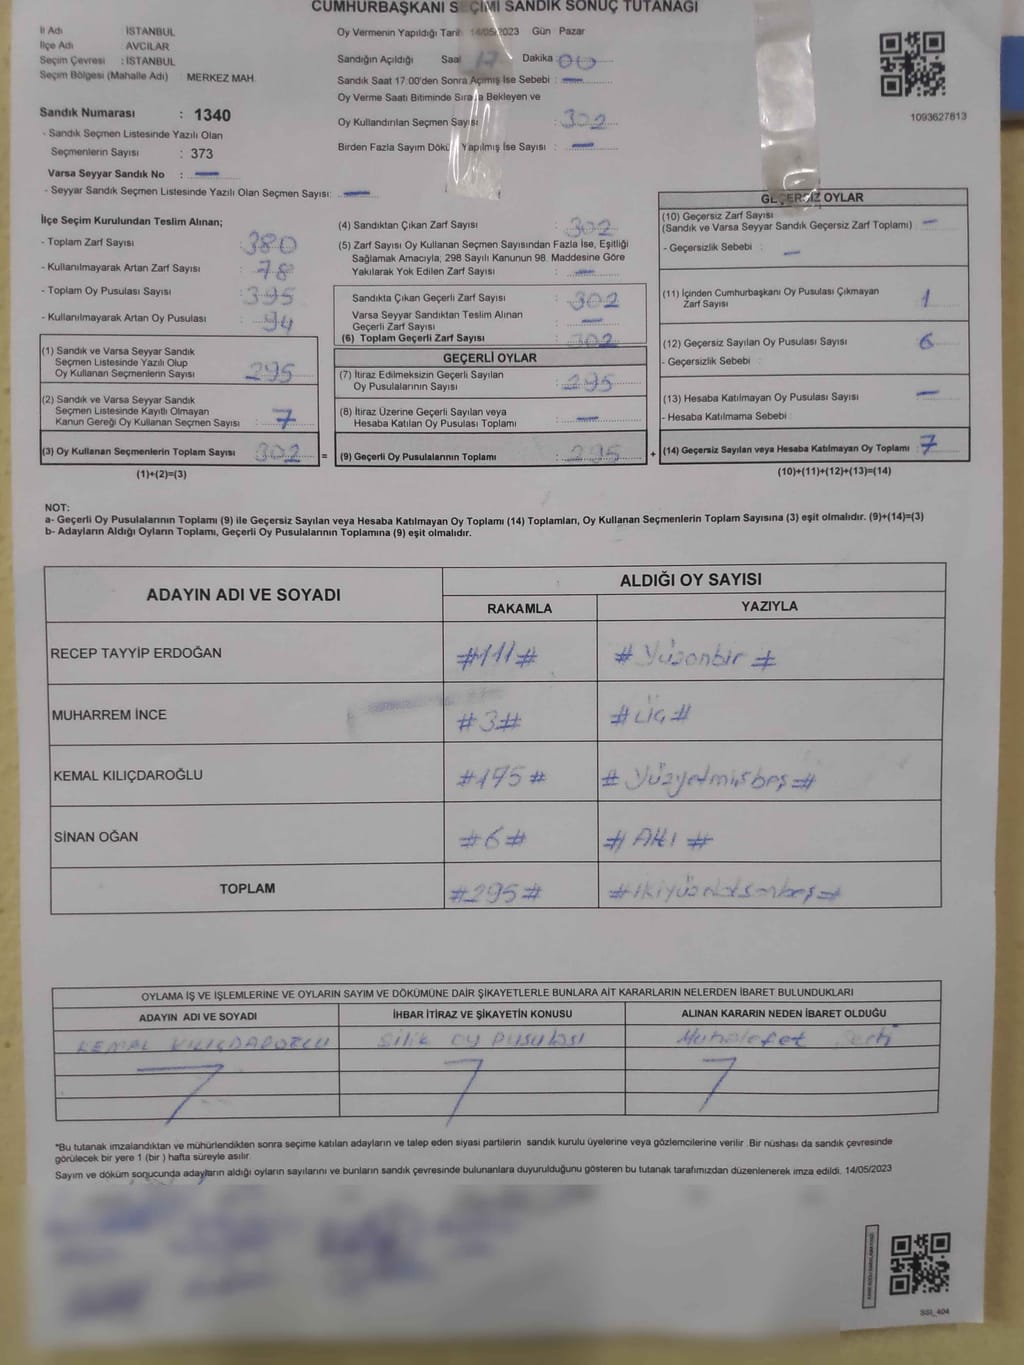 CUMHURBAŞKANI SEÇİMİ SANDIK SONUÇ TUTANAĞI
İl Adı : İSTANBUL
İlçe Adı : AVCILAR
Seçim Çevresi : İSTANBUL
Seçim Bölgesi (Mahalle Adı) MERKEZ MAH.
Sandık Numarası : 1340
- Sandık Seçmen Listesinde Yazılı Olan
Seçmenlerin Sayısı : 373
Varsa Seyyar Sandık No : —
- Seyyar Sandık Seçmen Listesinde Yazılı Olan Seçmen Sayısı: —
Oy Vermenin Yapıldığı Tarih 14/05/2023 Gün Pazar
Sandığın Açıldığı Saat 17 Dakika 00
Sandık Saat 17:00'den Sonra Açılmış İse Sebebi : —
Oy Verme Saati Bitiminde Sırada Bekleyen ve
Oy Kullandırılan Seçmen Sayısı : 302
Birden Fazla Sayım Dökü Yapılmış İse Sayısı : —
1093627813
İlçe Seçim Kurulundan Teslim Alınan;
- Toplam Zarf Sayısı : 380
- Kullanılmayarak Artan Zarf Sayısı : 78
- Toplam Oy Pusulası Sayısı : 395
- Kullanılmayarak Artan Oy Pusulası : 94
(1) Sandık ve Varsa Seyyar Sandık
Seçmen Listesinde Yazılı Olup
Oy Kullanan Seçmenlerin Sayısı : 295
(2) Sandık ve Varsa Seyyar Sandık
Seçmen Listesinde Kayıtlı Olmayan
Kanun Gereği Oy Kullanan Seçmen Sayısı : 7
(3) Oy Kullanan Seçmenlerin Toplam Sayısı : 302 =
(1)+(2)=(3)
(4) Sandıktan Çıkan Zarf Sayısı : 302
(5) Zarf Sayısı Oy Kullanan Seçmen Sayısından Fazla İse, Eşitliği
Sağlamak Amacıyla; 298 Sayılı Kanunun 98. Maddesine Göre
Yakılarak Yok Edilen Zarf Sayısı : —
Sandıkta Çıkan Geçerli Zarf Sayısı : 302
Varsa Seyyar Sandıktan Teslim Alınan
Geçerli Zarf Sayısı : —
(6) Toplam Geçerli Zarf Sayısı : 302
GEÇERLİ OYLAR
(7) İtiraz Edilmeksizin Geçerli Sayılan
Oy Pusulalarının Sayısı : 295
(8) İtiraz Üzerine Geçerli Sayılan veya
Hesaba Katılan Oy Pusulası Toplamı : —
(9) Geçerli Oy Pusulalarının Toplamı : 295 +
GEÇERSİZ OYLAR
(10) Geçersiz Zarf Sayısı
(Sandık ve Varsa Seyyar Sandık Geçersiz Zarf Toplamı) : —
- Geçersizlik Sebebi : —
(11) İçinden Cumhurbaşkanı Oy Pusulası Çıkmayan
Zarf Sayısı : 1
(12) Geçersiz Sayılan Oy Pusulası Sayısı : 6
- Geçersizlik Sebebi :
(13) Hesaba Katılmayan Oy Pusulası Sayısı : —
- Hesaba Katılmama Sebebi :
(14) Geçersiz Sayılan veya Hesaba Katılmayan Oy Toplamı : 7
(10)+(11)+(12)+(13)=(14)
NOT:
a- Geçerli Oy Pusulalarının Toplamı (9) ile Geçersiz Sayılan veya Hesaba Katılmayan Oy Toplamı (14) Toplamları, Oy Kullanan Seçmenlerin Toplam Sayısına (3) eşit olmalıdır. (9)+(14)=(3)
b- Adayların Aldığı Oyların Toplamı, Geçerli Oy Pusulalarının Toplamına (9) eşit olmalıdır.
ADAYIN ADI VE SOYADI
ALDIĞI OY SAYISI
RAKAMLA YAZIYLA
RECEP TAYYİP ERDOĞAN #111# # Yüzonbir #
MUHARREM İNCE #3# #ÜÇ#
KEMAL KILIÇDAROĞLU #175# # Yüzyetmişbeş #
SİNAN OĞAN #6# # Altı #
TOPLAM #295# #ikiyüzdoksanbeş#
OYLAMA İŞ VE İŞLEMLERİNE VE OYLARIN SAYIM VE DÖKÜMÜNE DAİR ŞİKAYETLERLE BUNLARA AİT KARARLARIN NELERDEN İBARET BULUNDUKLARI
ADAYIN ADI VE SOYADI İHBAR İTİRAZ VE ŞİKAYETİN KONUSU ALINAN KARARIN NEDEN İBARET OLDUĞU
KEMAL KILIÇDAROĞLU Silik oy pusulası Muhalefet
*Bu tutanak imzalandıktan ve mühürlendikten sonra seçime katılan adayların ve talep eden siyasi partilerin sandık kurulu üyelerine veya gözlemcilerine verilir. Bir nüshası da sandık çevresinde
görülecek bir yere 1 (bir ) hafta süreyle asılır.
Sayım ve döküm sonucunda adayların aldığı oyların sayılarını ve bunların sandık çevresinde bulunanlara duyurulduğunu gösteren bu tutanak tarafımızdan düzenlenerek imza edildi. 14/05/2023
SSI_404